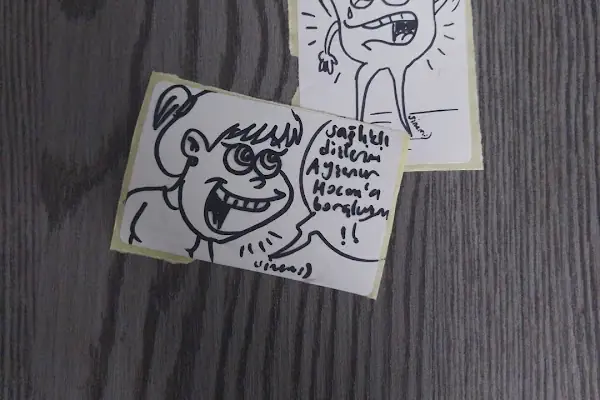 sağlıklı
dişlerimi
Ayşenur
Hocam'a
borçluyum
!!